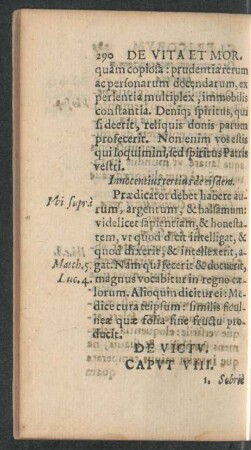 290 DE VITA ET MOR.
quam copiosa: prudentia rerum
ac personarum docendarum, ex
perientia multiplex, immobilis
constantia. Deniq; spiritus, qui
si deerit, reliquis donis parum
profecerit. Non enim vos estis
qui loquimini, sed spiritus Patris
vestri.
Innocentius tertius de eisdem.
Vbi suprà Prædicator debet habere au
rum, argentum, & balsamum:
videlicet sapientiam, & honesta
tem, vt quod dicit intelligat, &
quod dixerit, & intellexerit, a-
Matth. 5. gat. Nam qui fecerit & docuerit,
Luc. 4. magnus vocabitur in regno cæ
lorum. Alioquin dicitur ei: Me
dice cura teipsum: similis ficul-
neæ quæ folia sine fructu pro
ducit.
DE VICTV.
CAPVT VIII.
1. Sobrie